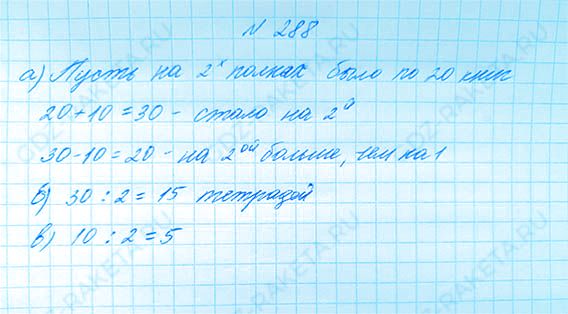 N 288
а) Пусть на 2х полках было по 20 книг
20+10=30 - стало на 2й
30-10=20 - на 2ой больше, чем на 1
б) 30 : 2 = 15 тетрадой
в) 10 : 2 = 5
GDZ-RAKETA.RU